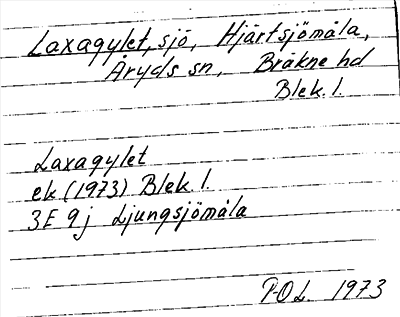 Laxagylet, sjö, Hjärtsjömåla,
Åryds sn, Bräkne hd
Blek. l.
Laxagylet
ek (1973) Blek l.
3E 9j Ljungsjömåla
P-OL. 1973